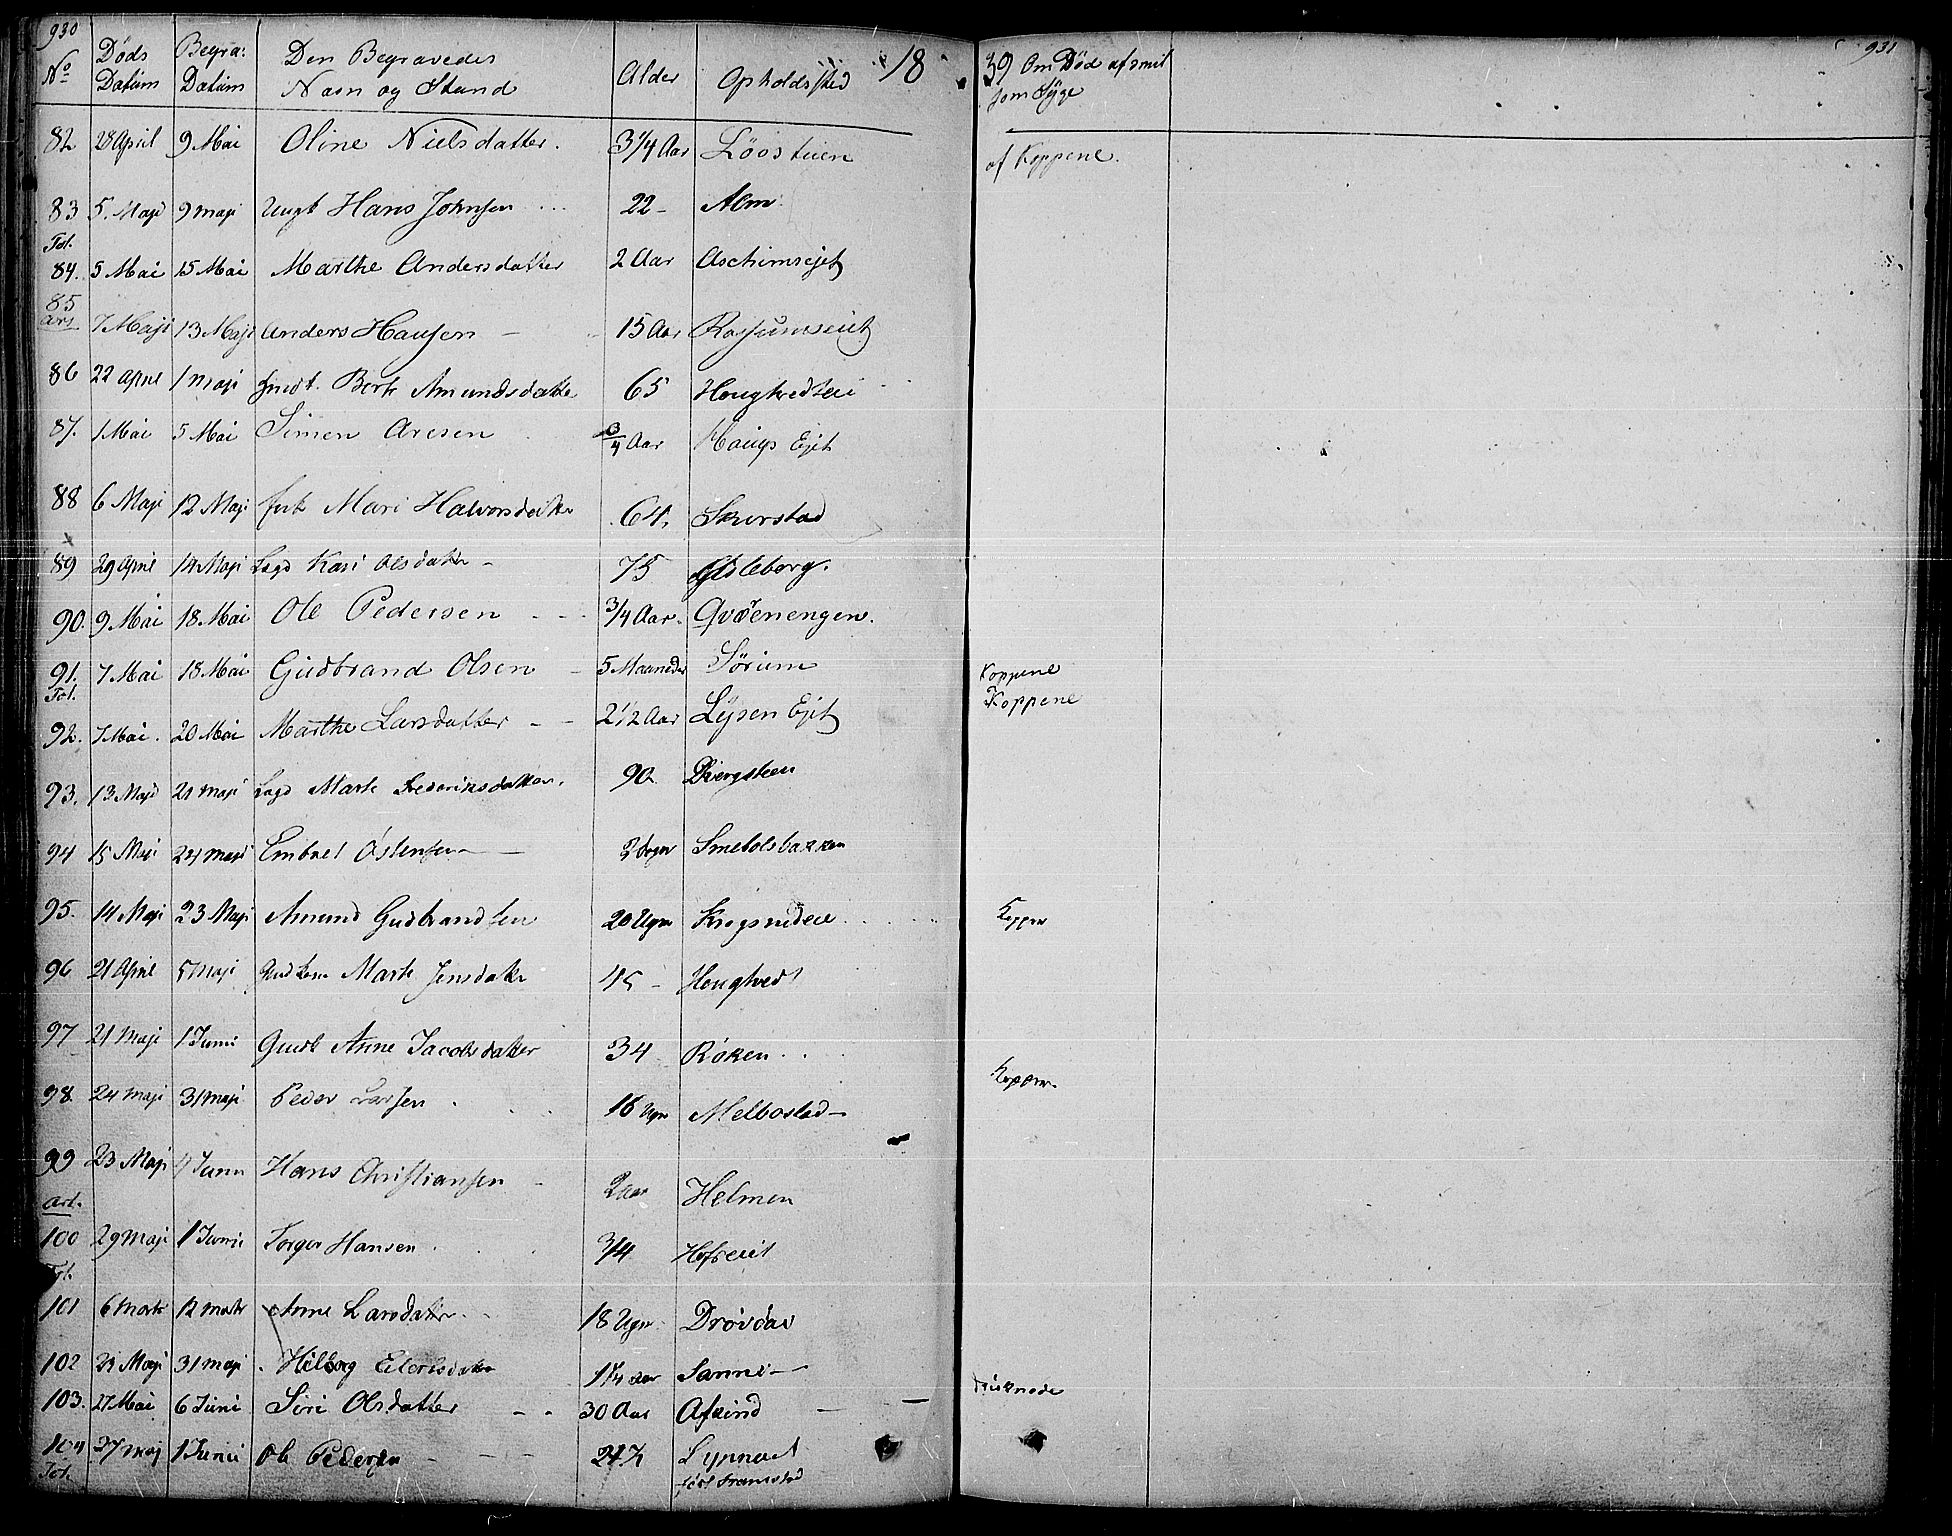 930
No Døds Datum Begra: Datum Den Begravedes Navn og Stand Alder Opholdsted 18
39 Om Død af smit som Syge 931
82 28 April 9 Mai Oline Nielsdatter. 3 1/4 Aar af Koppene.
83 5. Maji 9 maji Ungk Hans Johnsen 22 - Alm
Tot.
84. 5 Mai 15 Mai Marthe Andersdatter 2 Aar Aschimsejet
85 7 Maji 13 Maji Anders Hansen - 15 Aar Rossumseiet
86 22 April 1 maji Berte Amundsdatter 65
87. 1 Mai 5 Mai Simen Aresen 3/4 Aar Haugs Ejet
88 6 Maji 12 Maji Mari Halvorsdatter 64. Skierstad
89 29 April 14 Maji Lægd Kari Olsdatter - 75 Gisleborg.
90. 9 Mai 18 Mai Ole Pedersen - - 3/4 Aar. Qvœrnengen.
91. 7 Mai 18 Mai Gudbrand Olsen - 5 Maaneder Sørum Koppene
Tot.
92. 7 Mai. 20 Mai Marthe Larsdatter - - 2 1/2 Aar Lysen Ejet Koppene
93. 13 Maji 21 maji Lægd Marte Frederiksdatter. 90 Dvergsteen
94 15 Maji 24 maji Embret Østensen - Smebolsbakken
95. 14 Maji 23 Maji Amund Gudbrandsen 20 Uger Krogsrudeie Koppene
96 21 April 5 maji Marte Jensdatter 45 - Hougtvedt
97 21 maji 1 Junii Anne Jacobsdatter 34 Røken
98. 24 maji 31 maji Peder Larsen 16 Uger Melbostad - Koppene
99 23 Maji 4 Junii Hans Christiansen - 2 aar Helmen
art.
100 29 maji 1 Junii Torger Hansen 3/4 Hofseiet
Tot.
101 6 marts 12 marts Anne Larsdatter 18 Uger Drøvdal
102 21 Maji 31 maji Hilborg 1 1/4 aar Sanne -
103. 27 Mai 6 Juni Siri Olsdatter - - 30 Aar
104 27 maj 1 Junii Ole Pedersen - - - Lynne
Tot. født Framstad